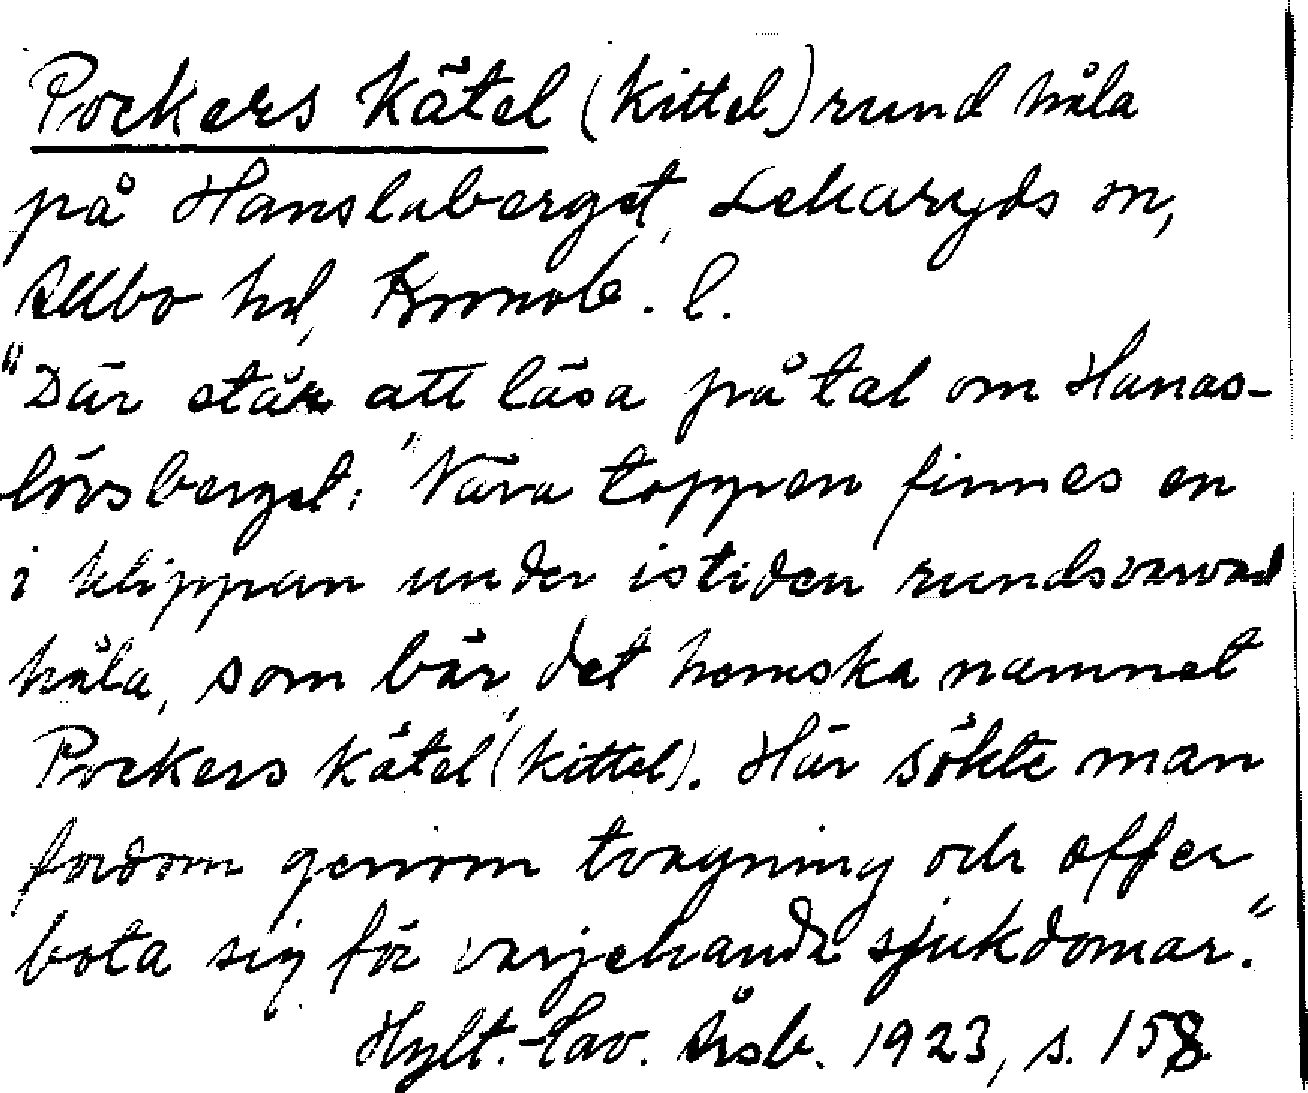 Pockers kätel (kittel) rund håla
på Hanslaberget, Lekaryds sn,
Allbo hd, Kronob. l.
"Där står att läsa på tal om Hanas-
lövsberget: "Nära toppen finnes en
i klippan under istiden rundsvarvad
håla, som bär det hemska namnet
Pockers kätel (kittel). Här söktе man
fordom genom tvagning och offer
bota sig för varjehanda sjukdomar."
Hylt.-Cav. Årsb. 1923, s. 158